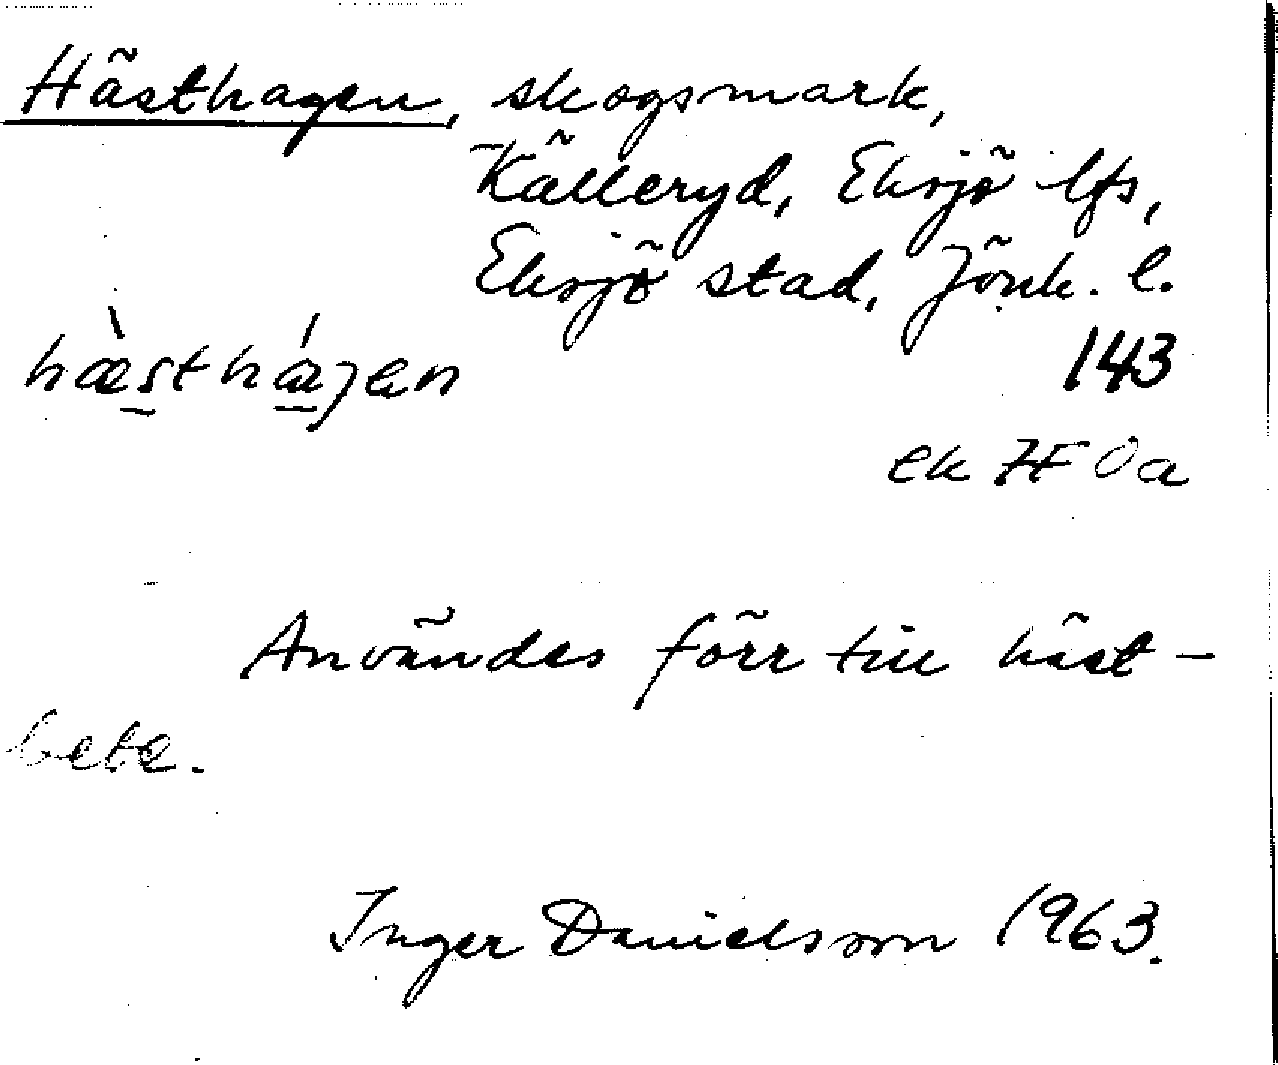 Hästhagen, skogsmark,
Källeryd, Eksjö lfs,
Eksjö stad, Jönk. l.
hæ̀stháɡen 143
ek 7F 0a
Användes förr till häst-
bete.
Inger Danielsson 1963.